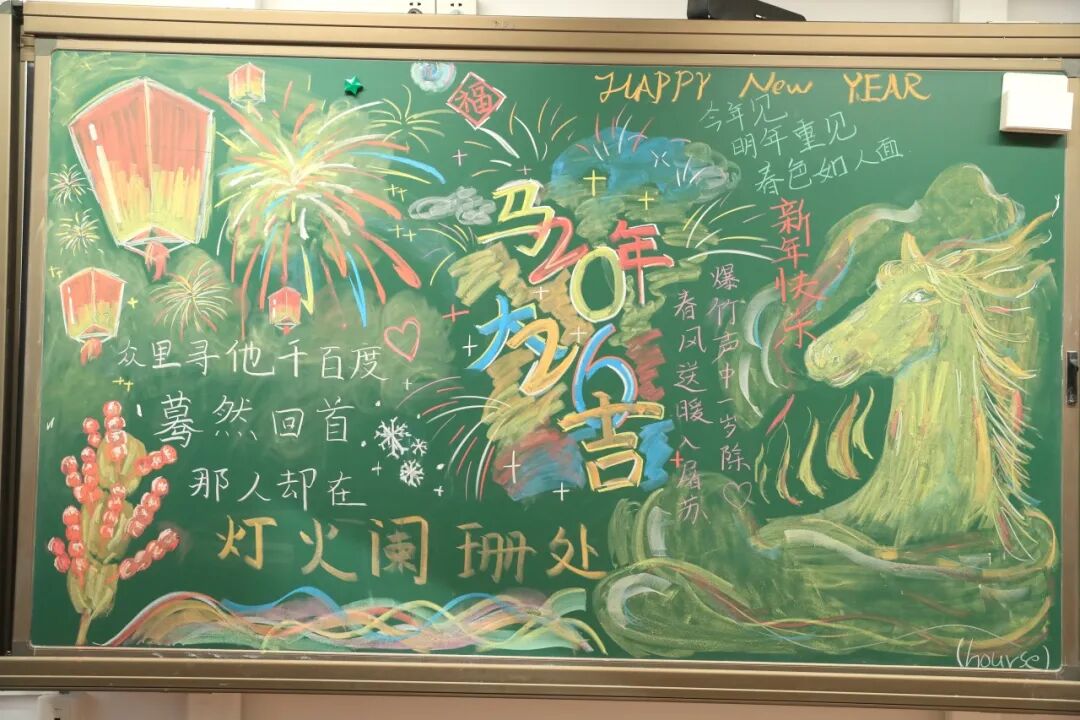 福
HAPPY New YEAR
今年见
明年重见
春色如人面
新年快乐
马年
2026
大吉
爆竹声中一岁除
春风送暖入屠苏
众里寻他千百度
蓦然回首
那人却在
灯火阑珊处
(hourse)